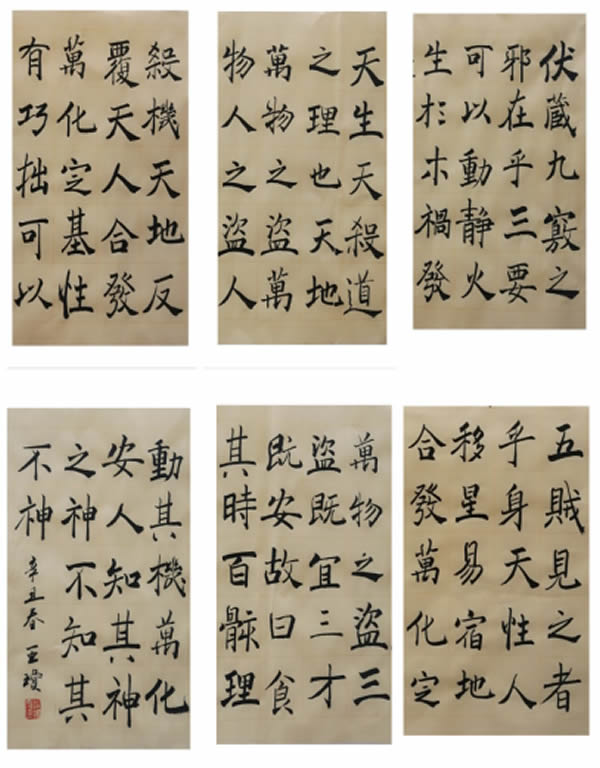 伏藏九竅之
邪在乎三要
可以動靜火
生於木禍發
天生天殺道
之理也天地
萬物之盜萬
物人之盜人
殺機天地反
覆天人合發
萬化定基性
有巧拙可以
五賊見之者
乎身天性人
移星易宿地
合發萬化定
萬物之盜三
盜既宜三才
既安故曰食
其時百骸理
動其機萬化
安人知其神
之神不知其
不神
辛丑春王瓊